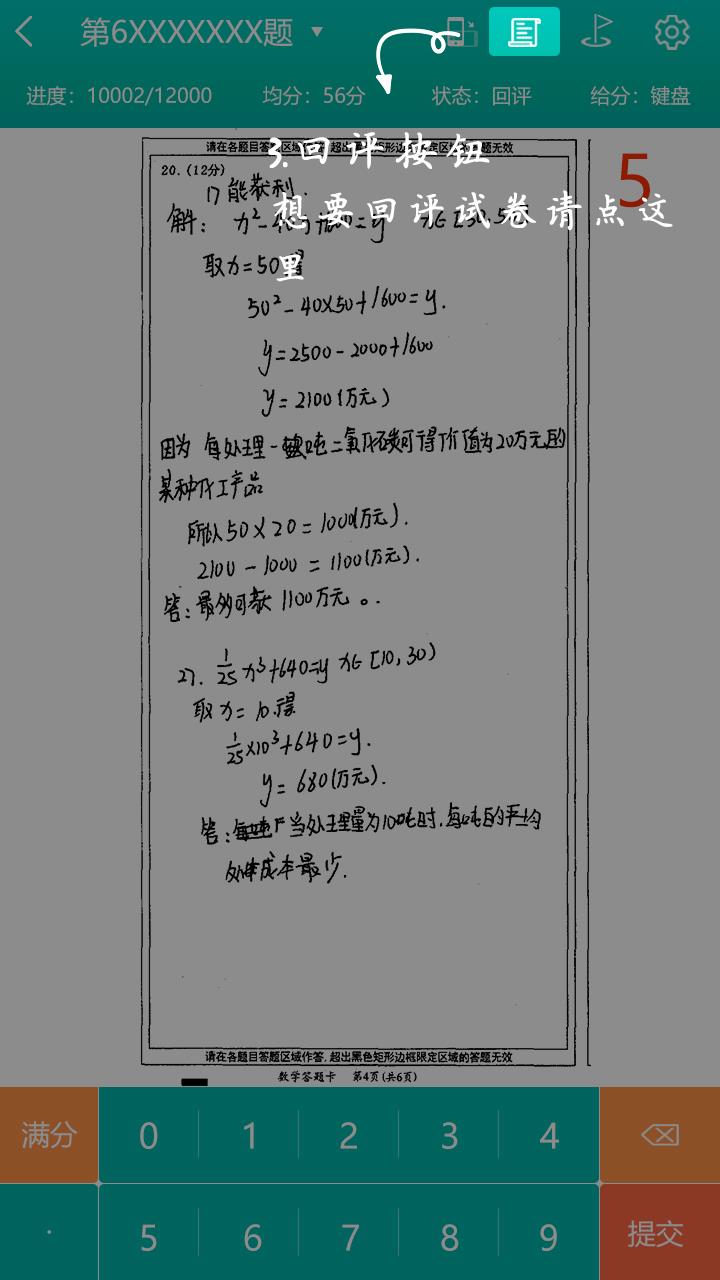 第6XXXXXXX题
进度：10002/12000 均分：56分 状态：回评 给分：键盘
请在各题目答题区域作答，超出黑色矩形边框限定区域的答题无效
3.回评按钮
想要回评试卷请点这
里
5
20.（12分）
1) 能获利.
解：
取x=50得
50²-40×50+1600=y.
y=2500-2000+1600
y=2100(万元)
因为 每处理一吨二氧化碳可得价值为20万元的
某种化工产品
所以50×20=1000(万元).
2100-1000=1100(万元).
答：最多可获1100万元。.
2). 1/25x³+640=y x∈[10,30)
取x=10.得
1/25×10³+640=y.
y=680(万元).
答：当处理量为10吨时,每吨的平均
成本最少.
请在各题目答题区域作答，超出黑色矩形边框限定区域的答题无效
数学答题卡 第4页(共6页)
满分 0 1 2 3 4
· 5 6 7 8 9 提交